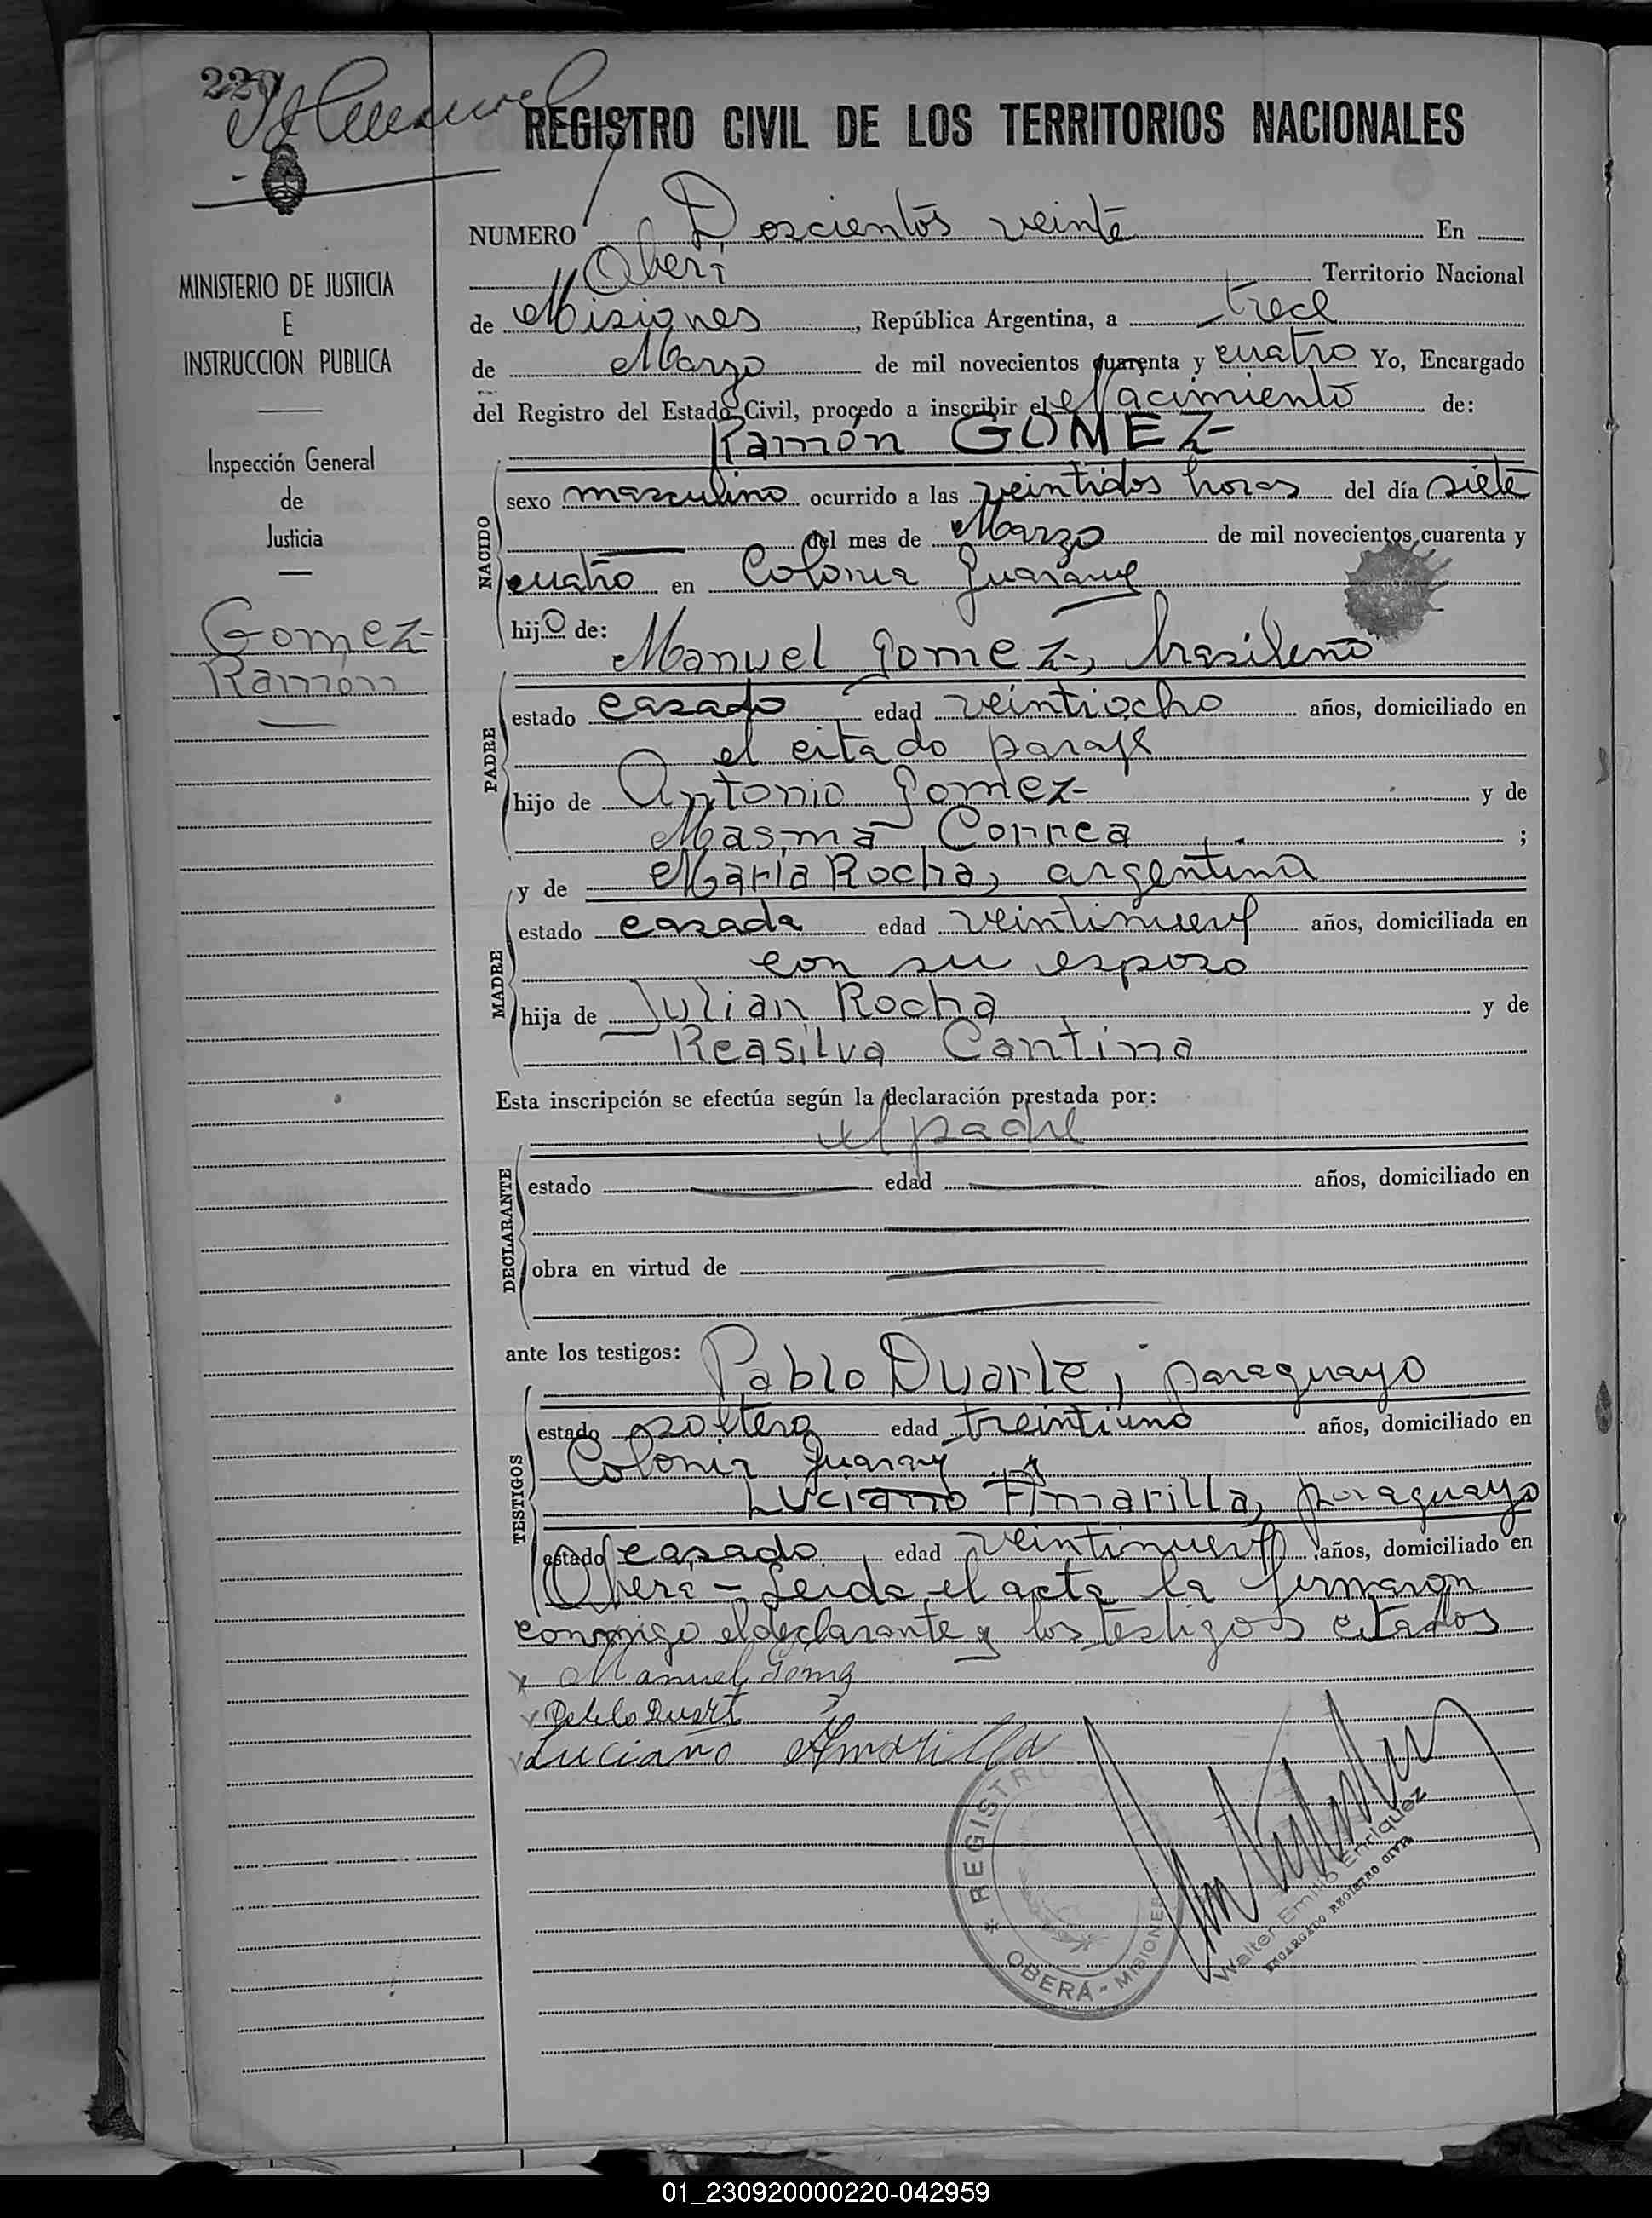 220
REGISTRO CIVIL DE LOS TERRITORIOS NACIONALES
NUMERO Doscientos veinte En
Oberá Territorio Nacional
de Misiones, República Argentina, a trece
de Marzo de mil novecientos cuarenta y cuatro Yo, Encargado
del Registro del Estado Civil, procedo a inscribir el Nacimiento de:
Ramón GOMEZ-
MINISTERIO DE JUSTICIA
E
INSTRUCCION PUBLICA
Inspección General
de
Justicia
Gomez-
Ramón
NACIDO
sexo masculino ocurrido a las veintidos horas del día siete
del mes de Marzo de mil novecientos cuarenta y
cuatro en Colonia Guarany
hijo de:
Manuel Gomez-, brasileño
PADRE
estado casado edad veintiocho años, domiciliado en
el citado paraje
hijo de Antonio Gomez- y de
Masma Correa ;
y de María Rocha, argentina
MADRE
estado casada edad veintinueve años, domiciliada en
con su esposo
hija de Julian Rocha y de
Reasilva Cantina
Esta inscripción se efectúa según la declaración prestada por:
el padre
DECLARANTE
estado edad años, domiciliado en
obra en virtud de
ante los testigos: Pablo Duarte, paraguayo
TESTIGOS
estado soltero edad treintiuno años, domiciliado en
Colonia Guarany y
Luciano Amarilla, paraguayo
estado casado edad veintinueve años, domiciliado en
Oberá - Leida el acta la firmaron
conmigo el declarante y los testigos citados
x Manuel Gomez
x Pablo Duart
x Luciano Amarilla
* REGISTRO
OBERÁ - MISIONES
Walter Emilio Enriquez
ENCARGADO REGISTRO CIVIL
01_230920000220-042959